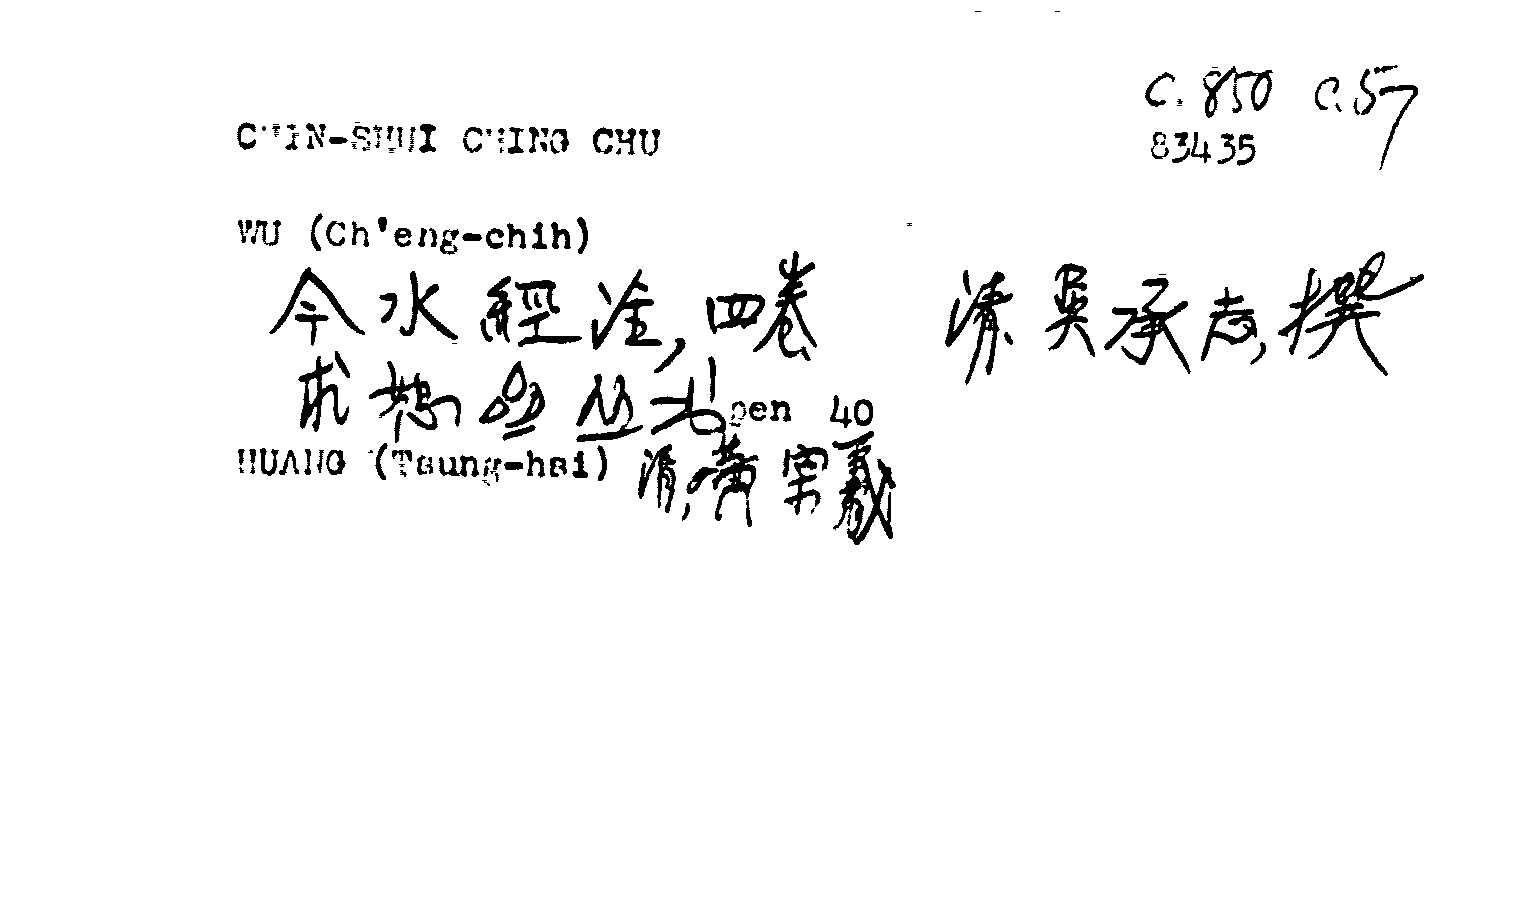 C. 850 C.57
CHIN-SHUI CHING CHU
83435
WU (Ch'eng-chih)
今水經注,四卷 清吳承志,撰
求恕齋叢書 pen 40
HUANG (Tsung-hsi) 清,黃宗羲